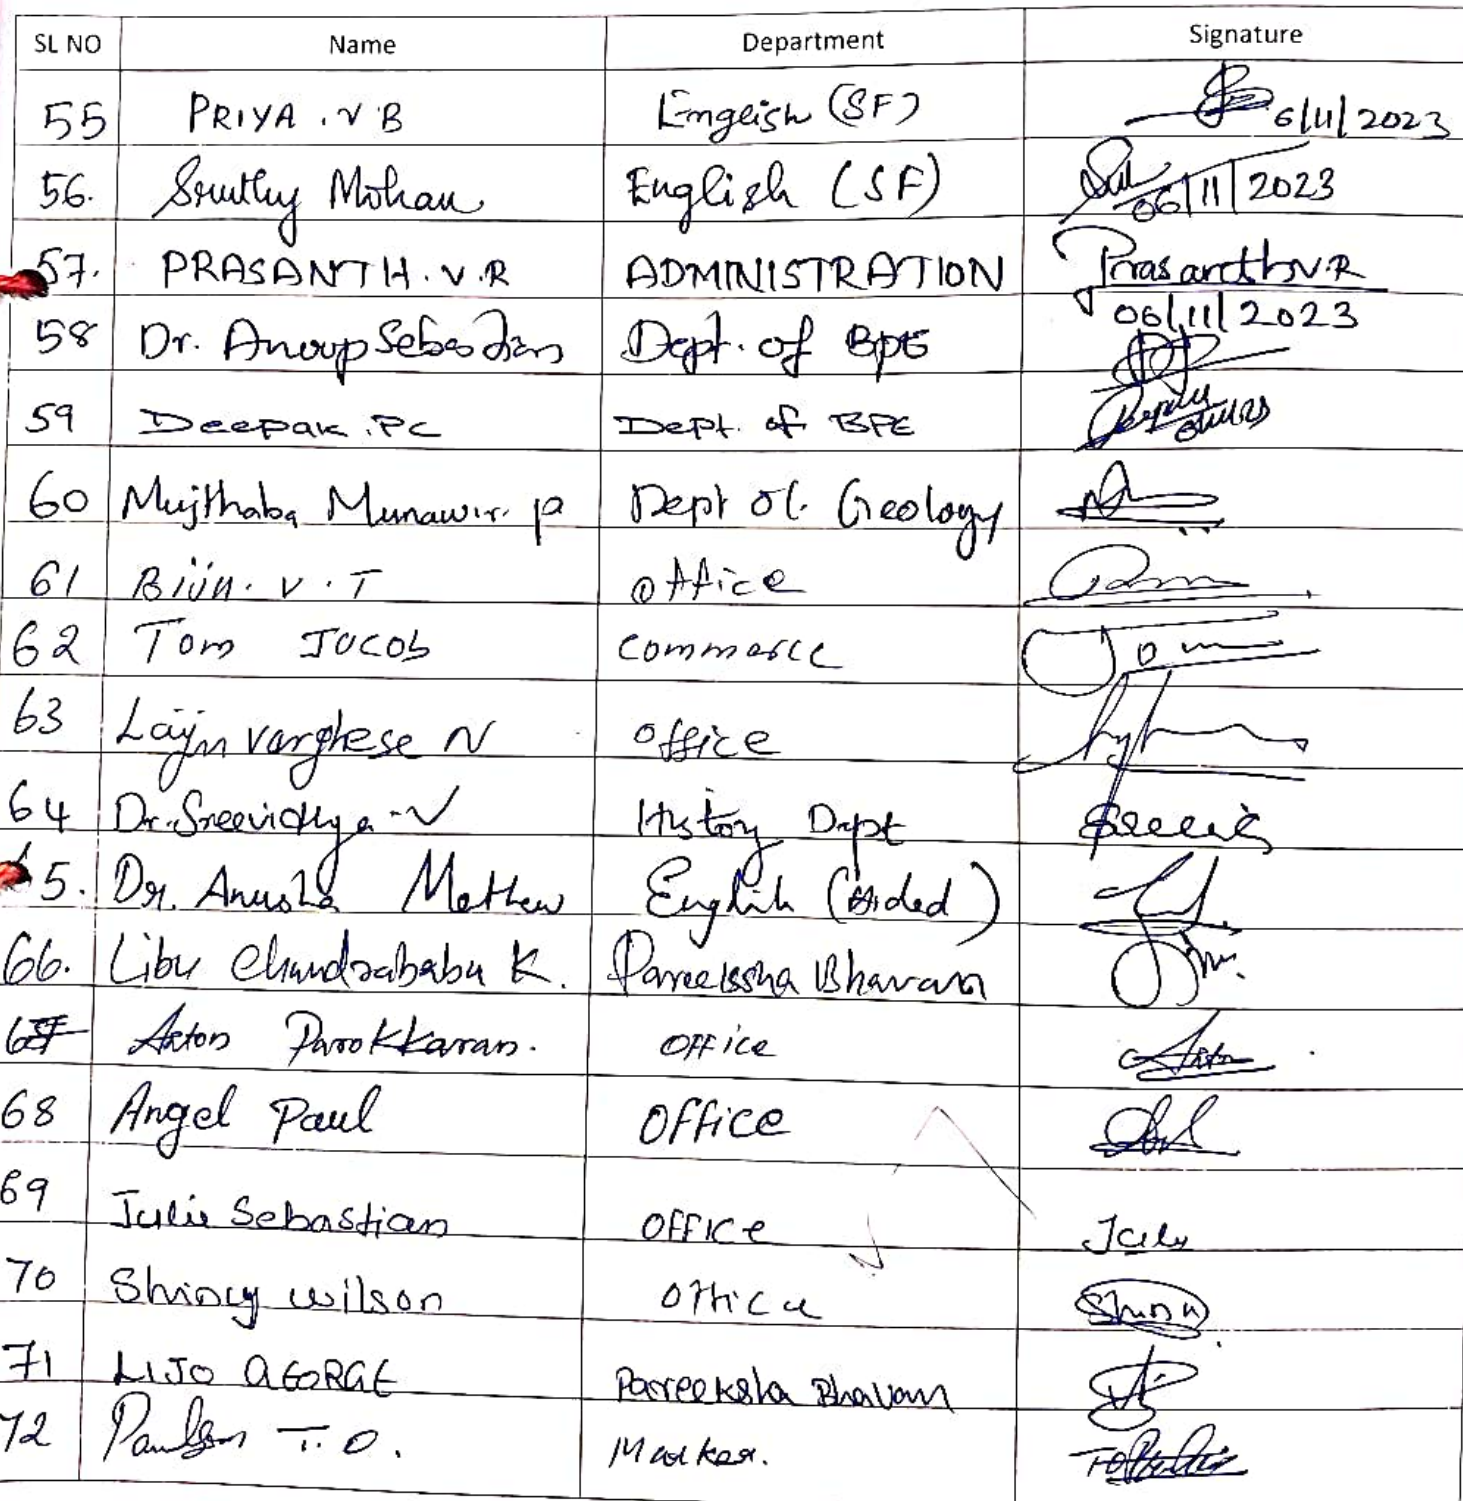 SL NO Name Department Signature
55 PRIYA . V B Engeish (SF) 6/11/2023
56. Sruthy Mohan English (SF) 06/11/2023
57. PRASANTH . V . R ADMINISTRATION Prasanth V.R
06/11/2023
58 Dr. Anoop Sebastian Dept. of BPE
59 Deepak . PC Dept. of BPE
60 Mujthaba Munawir. P Dept of. Geology
61 Bijin . V . T Office
62 Tom JOCOB Commerce Tom
63 Laijn varghese N office
64 Dr. Sreevidhya . V History Dept
5. Dr. Anusha Mathew English (Aided)
66. Libu Chandrababu K. Pareeksha Bhavan
67 Anton Parokkaran. OFFice
68 Angel Paul Office
69 Julie Sebastian OFFICE
70 Shincy wilson Office
71 LIJO GEORGE Pareeksha Bhavan
72 Paulson T. O. Marker.